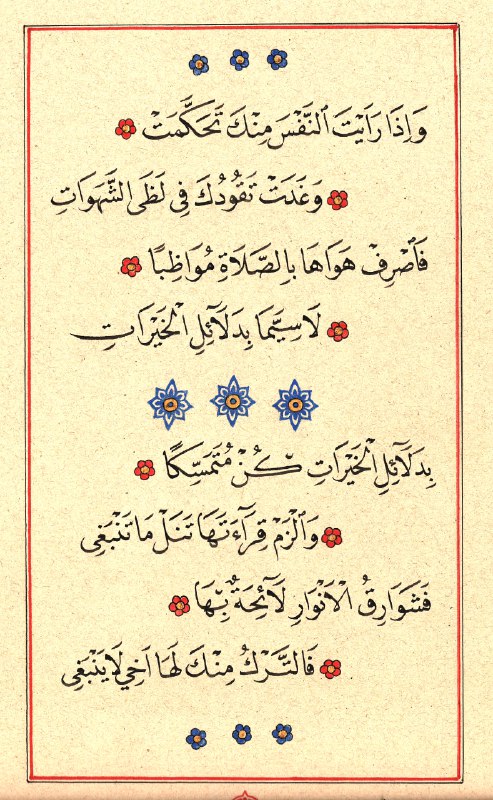 وَاِذَا رَاَيْتَ النَّفْسَ مِنْكَ تَحَكَّمَتْ
وَغَدَتْ تَقُودُكَ فِي لَظَى الشَّهَوَاتِ
فَاصْرِفْ هَوَاهَا بِالصَّلَاةِ مُوَاظِبًا
لَاسِيَّمَا بِدَلَآئِلِ الْخَيْرَاتِ
بِدَلَآئِلِ الْخَيْرَاتِ كُنْ مُتَمَسِّكًا
وَالْزَمْ قِرَآءَتَهَا تَنَلْ مَا تَنْبَغِى
فَشَوَارِقُ الْاَنْوَارِ لَآئِحَةٌ بِهَا
فَالتَّرْكُ مِنْكَ لَهَا اَخِي لَايَنْبَغِى